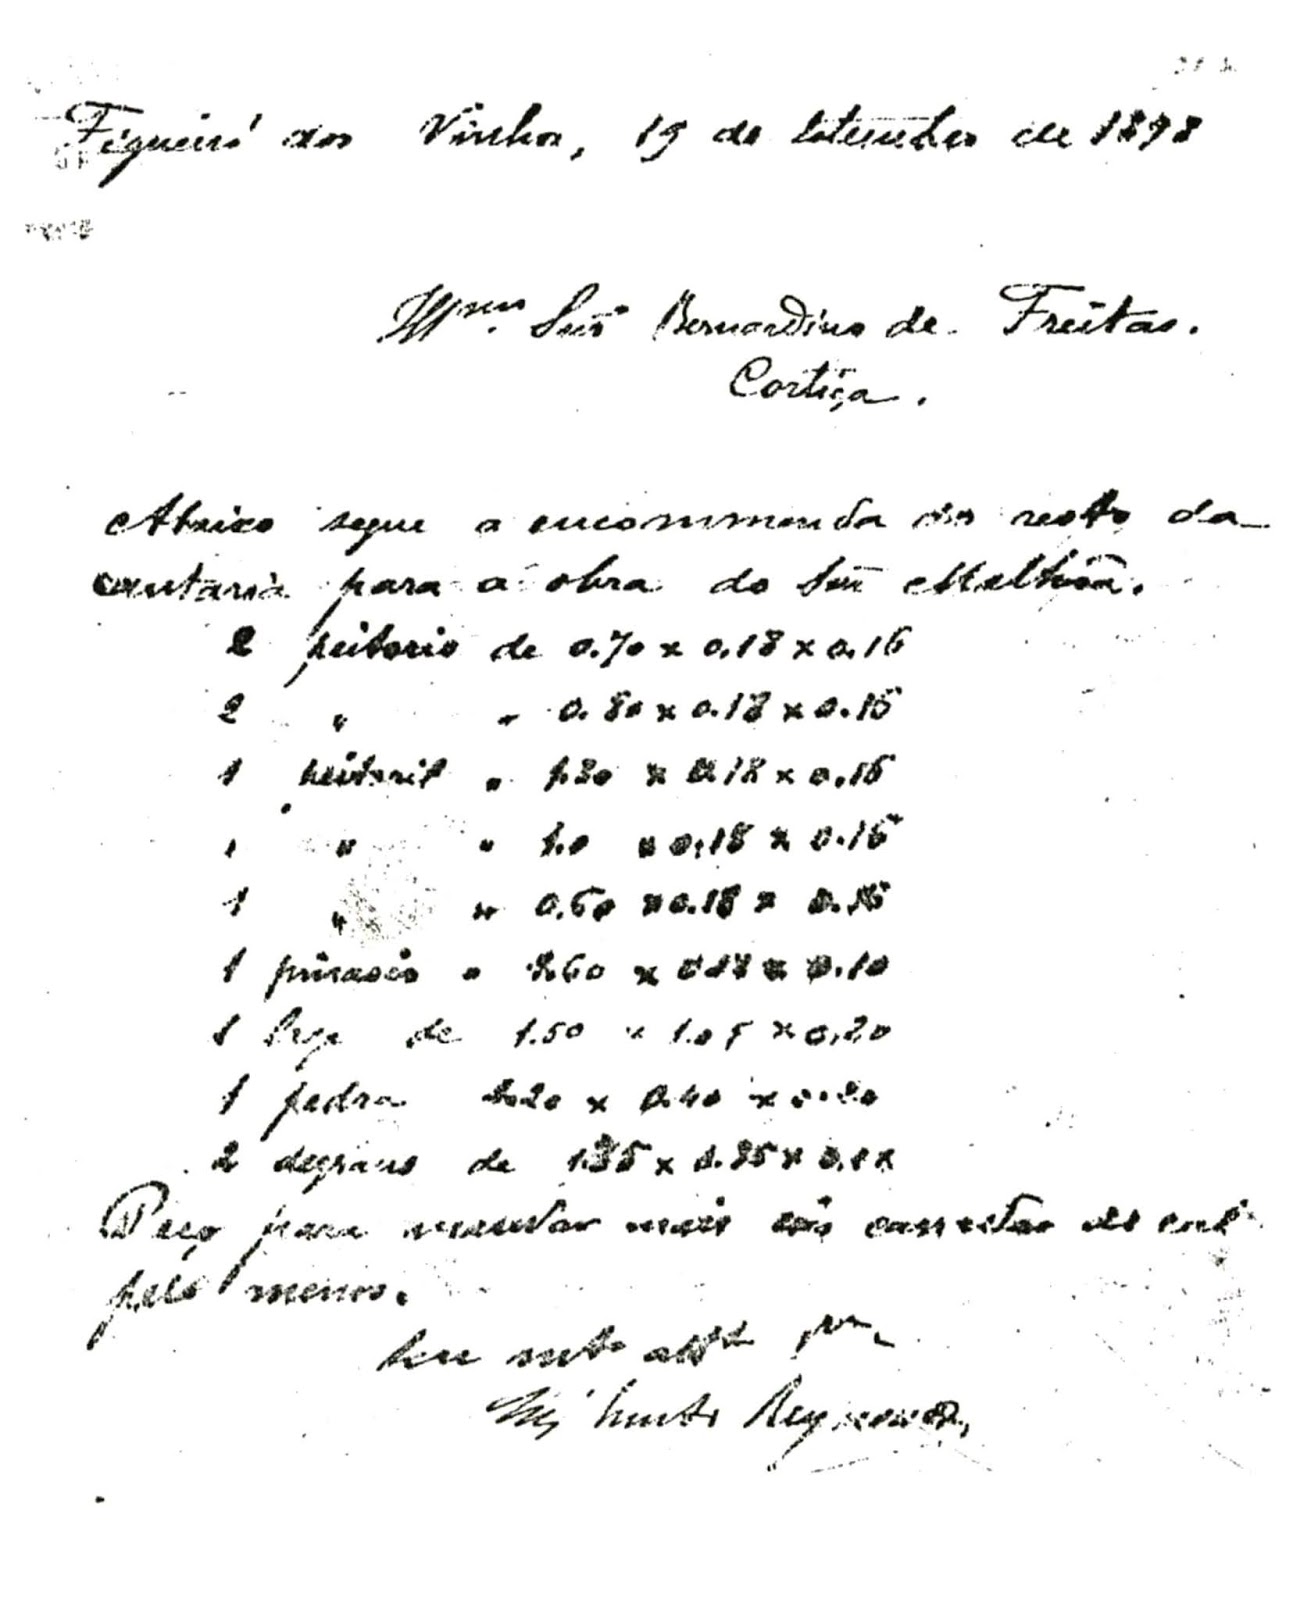 Figueiró dos Vinhos, 19 de Setembro de 1898
Illmo. Snr Bernardino de Freitas.
Cortiça.
Abaixo segue a encommenda do resto da
cantaria para a obra do Snr Malhoa.
2 peitoris de 0.70 x 0.18 x 0.16
2 " " 0.80 x 0.18 x 0.16
1 peitoril " 1.20 x 0.18 x 0.16
1 " " 1.0 x 0.18 x 0.16
1 " " 0.60 x 0.18 x 0.16
1 " 2.60 x 0.10
1 de 1.50 x 1.05 x 0.20
1 pedra 2.20 x 0.40 x 0.20
2 degraus de x
Peço para mandar mais carradas de cal
pelo menos.
Seu mto
Luiz